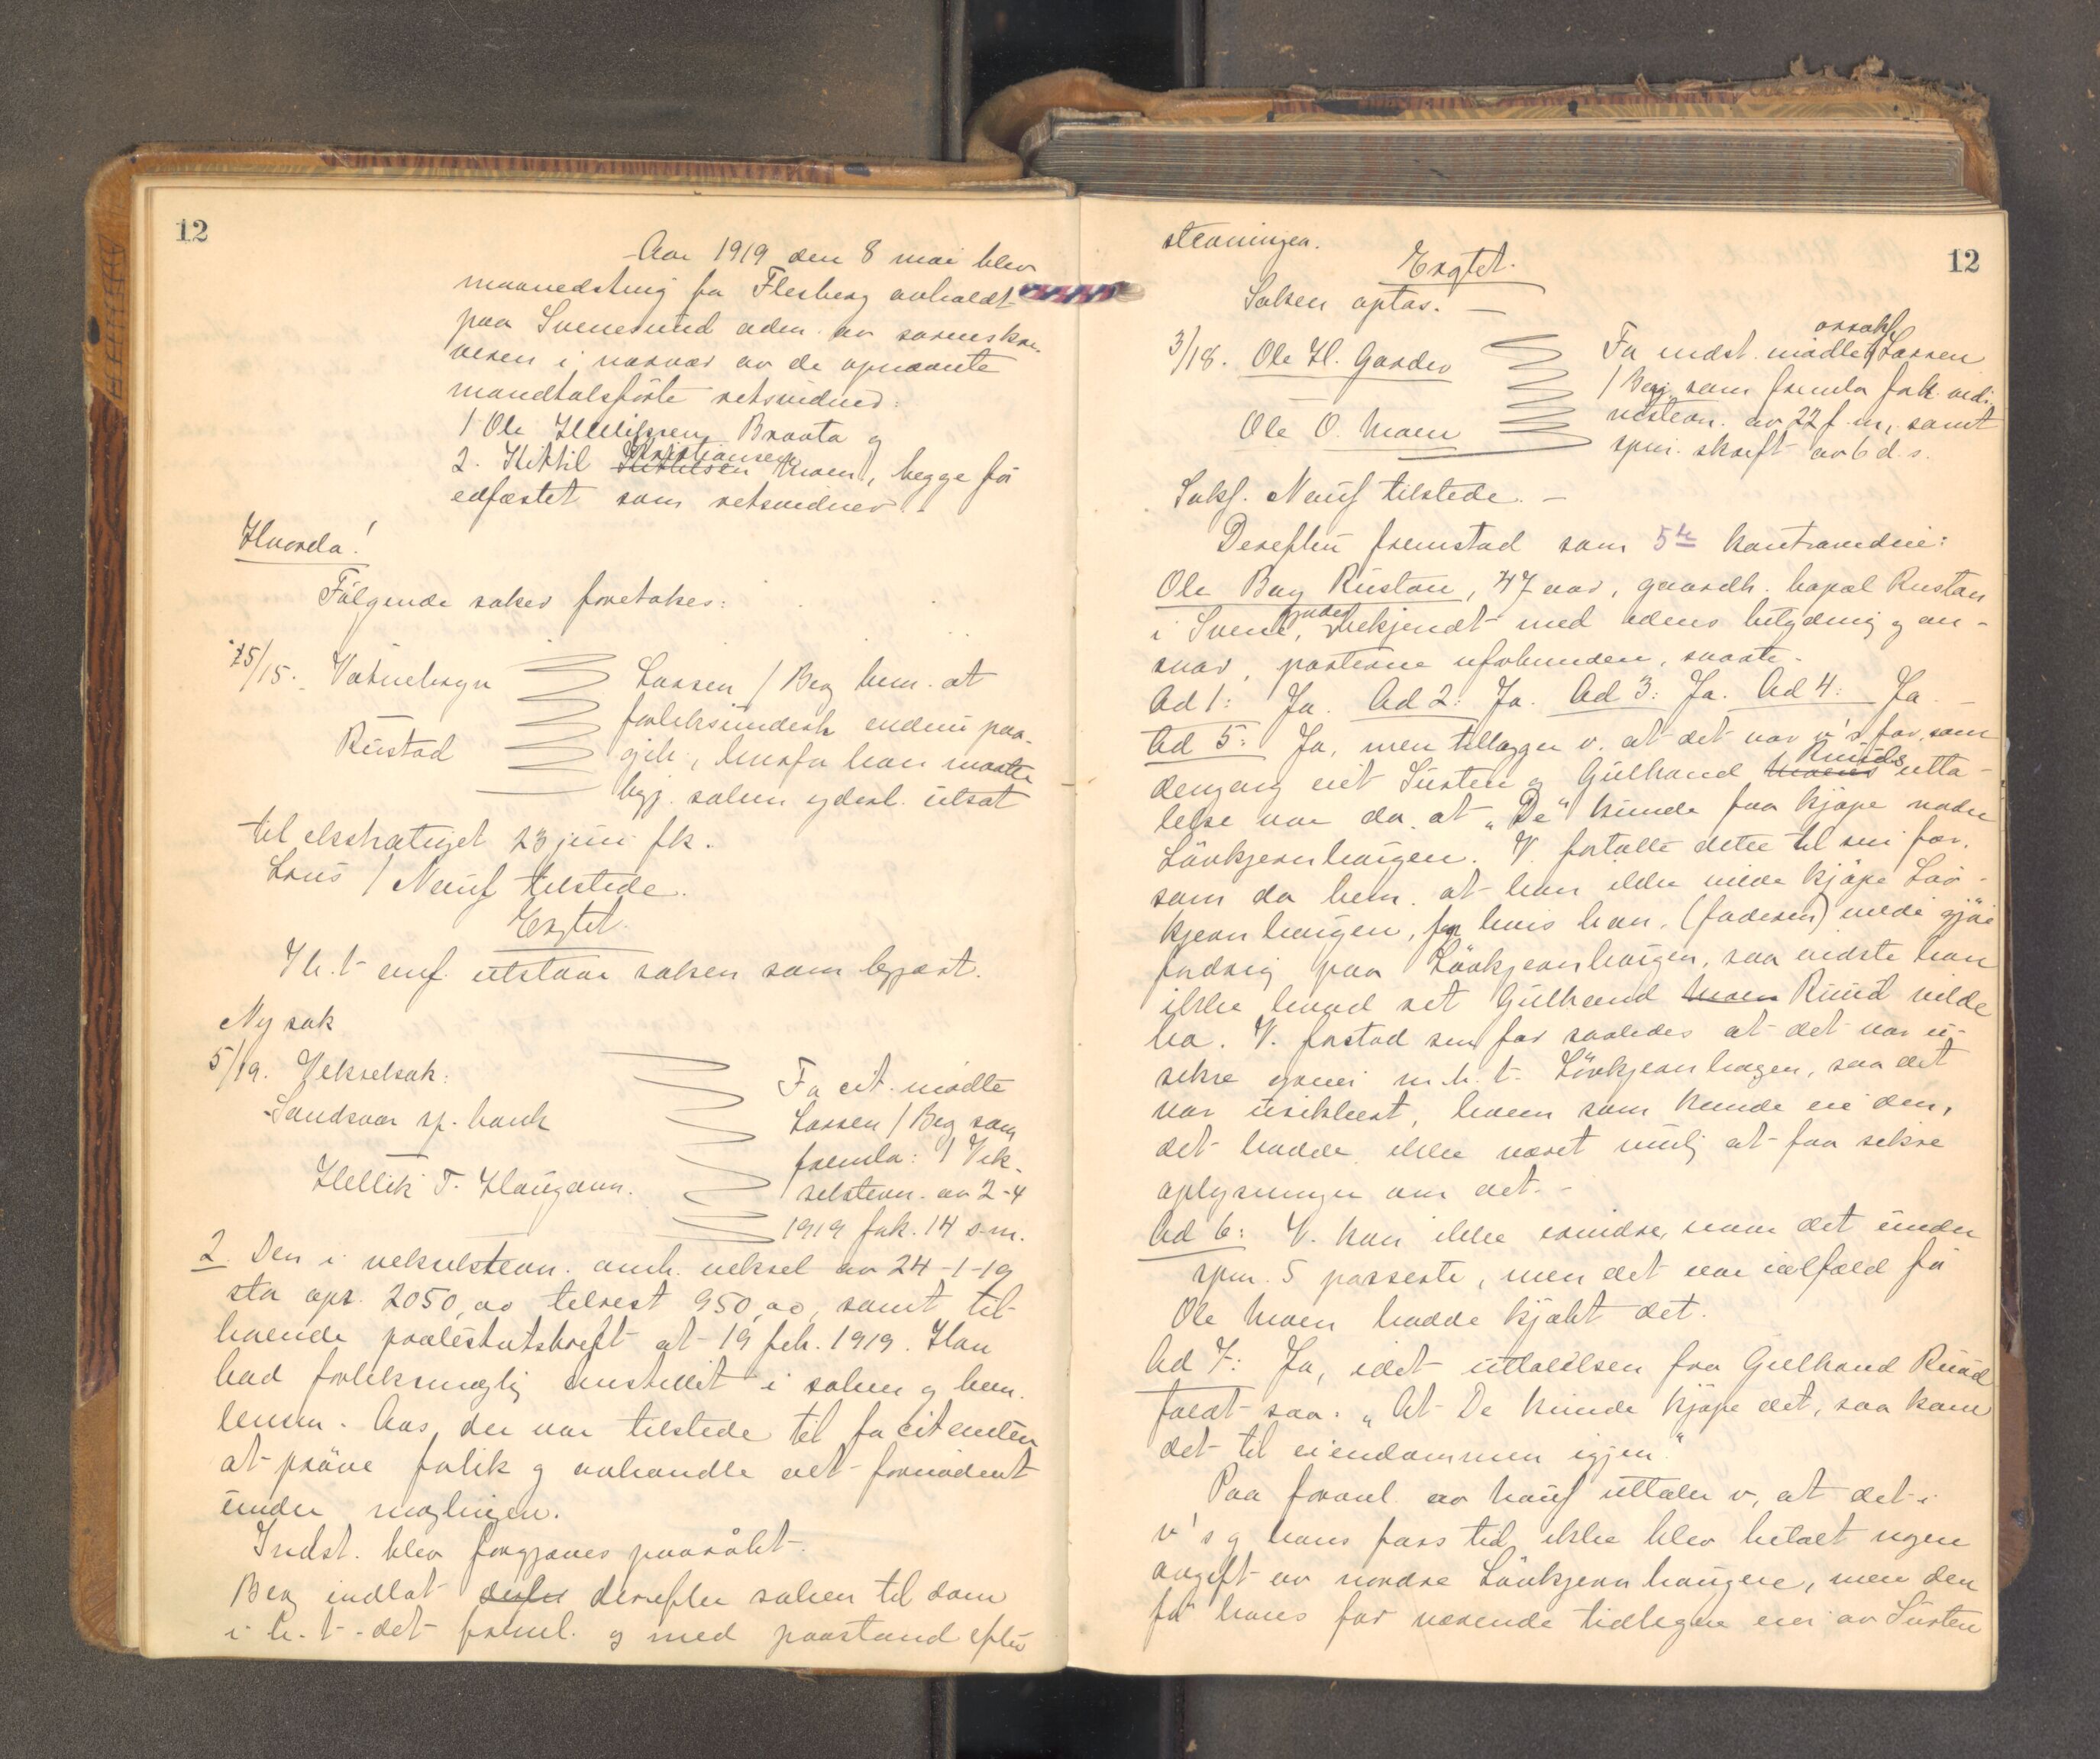 12
Aar 1919 den 8 mai blev
maanedsting for Flesberg avholdt
paa Svenesund adm. av sorenskri-
veren i nærvær av de opnævnte
mandtalsførte retsvidner:
1 Ole Helliksen Braata og
2. Kittil Kristiansen Moen, begge før
edfæstet som retsvidner.
Hvorda!
Følgende saker foretokes:
15/15. Vatnebryn
Rustad
Larsen / Berg bem. at
forliksunders. endnu paa-
gik, hvorfor han maatte
begj. saken yderl. utsat
til ekstratinget 23 juni fk.
Lous / Nauf tilstede.
Eragtet.
I h. t. enf. utstaar saken som begjært.
Ny sak
5/19. Vekselsak:
Sandsvær sp. bank
Hellik T. Haugann.
For cit. mødte
Larsen / Berg som
fremla: 1 Vek-
selstevn. av 2-4
1919 fork. 14 s.m.
2. Den i vekselstevn. omh. veksel av 24-1-19
sto opr. 2050,00 tilrest 950,00, samt til-
hørende protestutskrift at 19 feb. 1919. Han
bad forliksmægling anstillet i saken og bem.
lensm. Aas, der var tilstede til for citanten
at prøve forlik og avhandle det fornødent
under mæglingen.
Indst. blev forgjæves paaråbt.
Berg indlot derefter derefter saken til dom
i h. t. det freml. og med paastand efter
12
stevningen.
Eragtet.
Saken optas.
3/18. Ole H. Garder
Ole O. Moen
For indst. mødte orsakf. Larsen
/ Berg som fremla fork. vid-
nestevn. av 22 f. m, samt
spm. skrift av 6 d. s.
Sakf. Nauf tilstede. —
Derefter fremstod som 5te kontravidne:
Ole Bay Rustan, 47 aar, gaardb. bopæl Rustan
i Svene, gjordes bekjendt med edens betydning og an-
svar, parterne uforbunden, svarte.
Ad 1: Ja. Ad 2: Ja. Ad 3: Ja. Ad 4: Ja
Ad 5: Ja, men tillægger v. at det var v's far, som
dengang eiet Susten og Gulbrand Moens Ruuds utta-
lelse var da at „De" kunde faa kjøpe nordre
Løvkjernhaugen. V. fortalte dette til sin far,
som da bem. at han ikke vilde kjøpe Løv-
kjernhaugen, for hvis han, (faderen) vilde gjøre
fordring paa Løvkjernhaugen, saa vidste han
ikke hvad ret Gulbrand Moen Ruud vilde
ha. V. forstod sin far saaledes at det var u-
sikre greier m. h. t. Løvkjernhagen, saa det
var usikkert, hvem som kunde eie den,
det hadde ikke været mulig at faa sikre
oplysninger om det. -
Ad 6: V. kan ikke erindre, naar det under
spm. 5 passerte, men det var ialfald før
Ole Moen hadde kjøbt det.
Ad 7: Ja, idet uttalelsen fra Gulbrand Ruud
faldt saa: „At De kunde kjøpe det, saa kom
det til eiendommen igjen"
Paa foranl. av Nauf uttaler v, at det i
v's og hans fars tid ikke blev betalt nogen
avgift av nordre Løvkjernhaugene, men den
før hans far værende tidligere eier av Susten